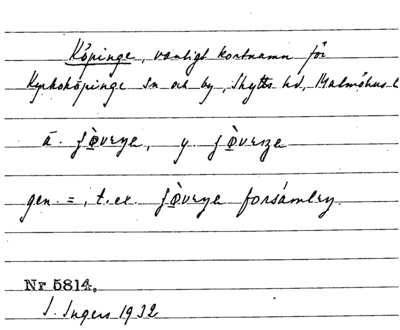 Köpinge, vanligt kortnamn för
Kyrkoköpinge sn och by, Skytts hd, Malmöhus l
ä. ʃøvꞮŋe, y. ʃøvɪŋe
gen. =, t.ex. forsámlɪŋ.
Nr 5814.
I. Ingers 1932